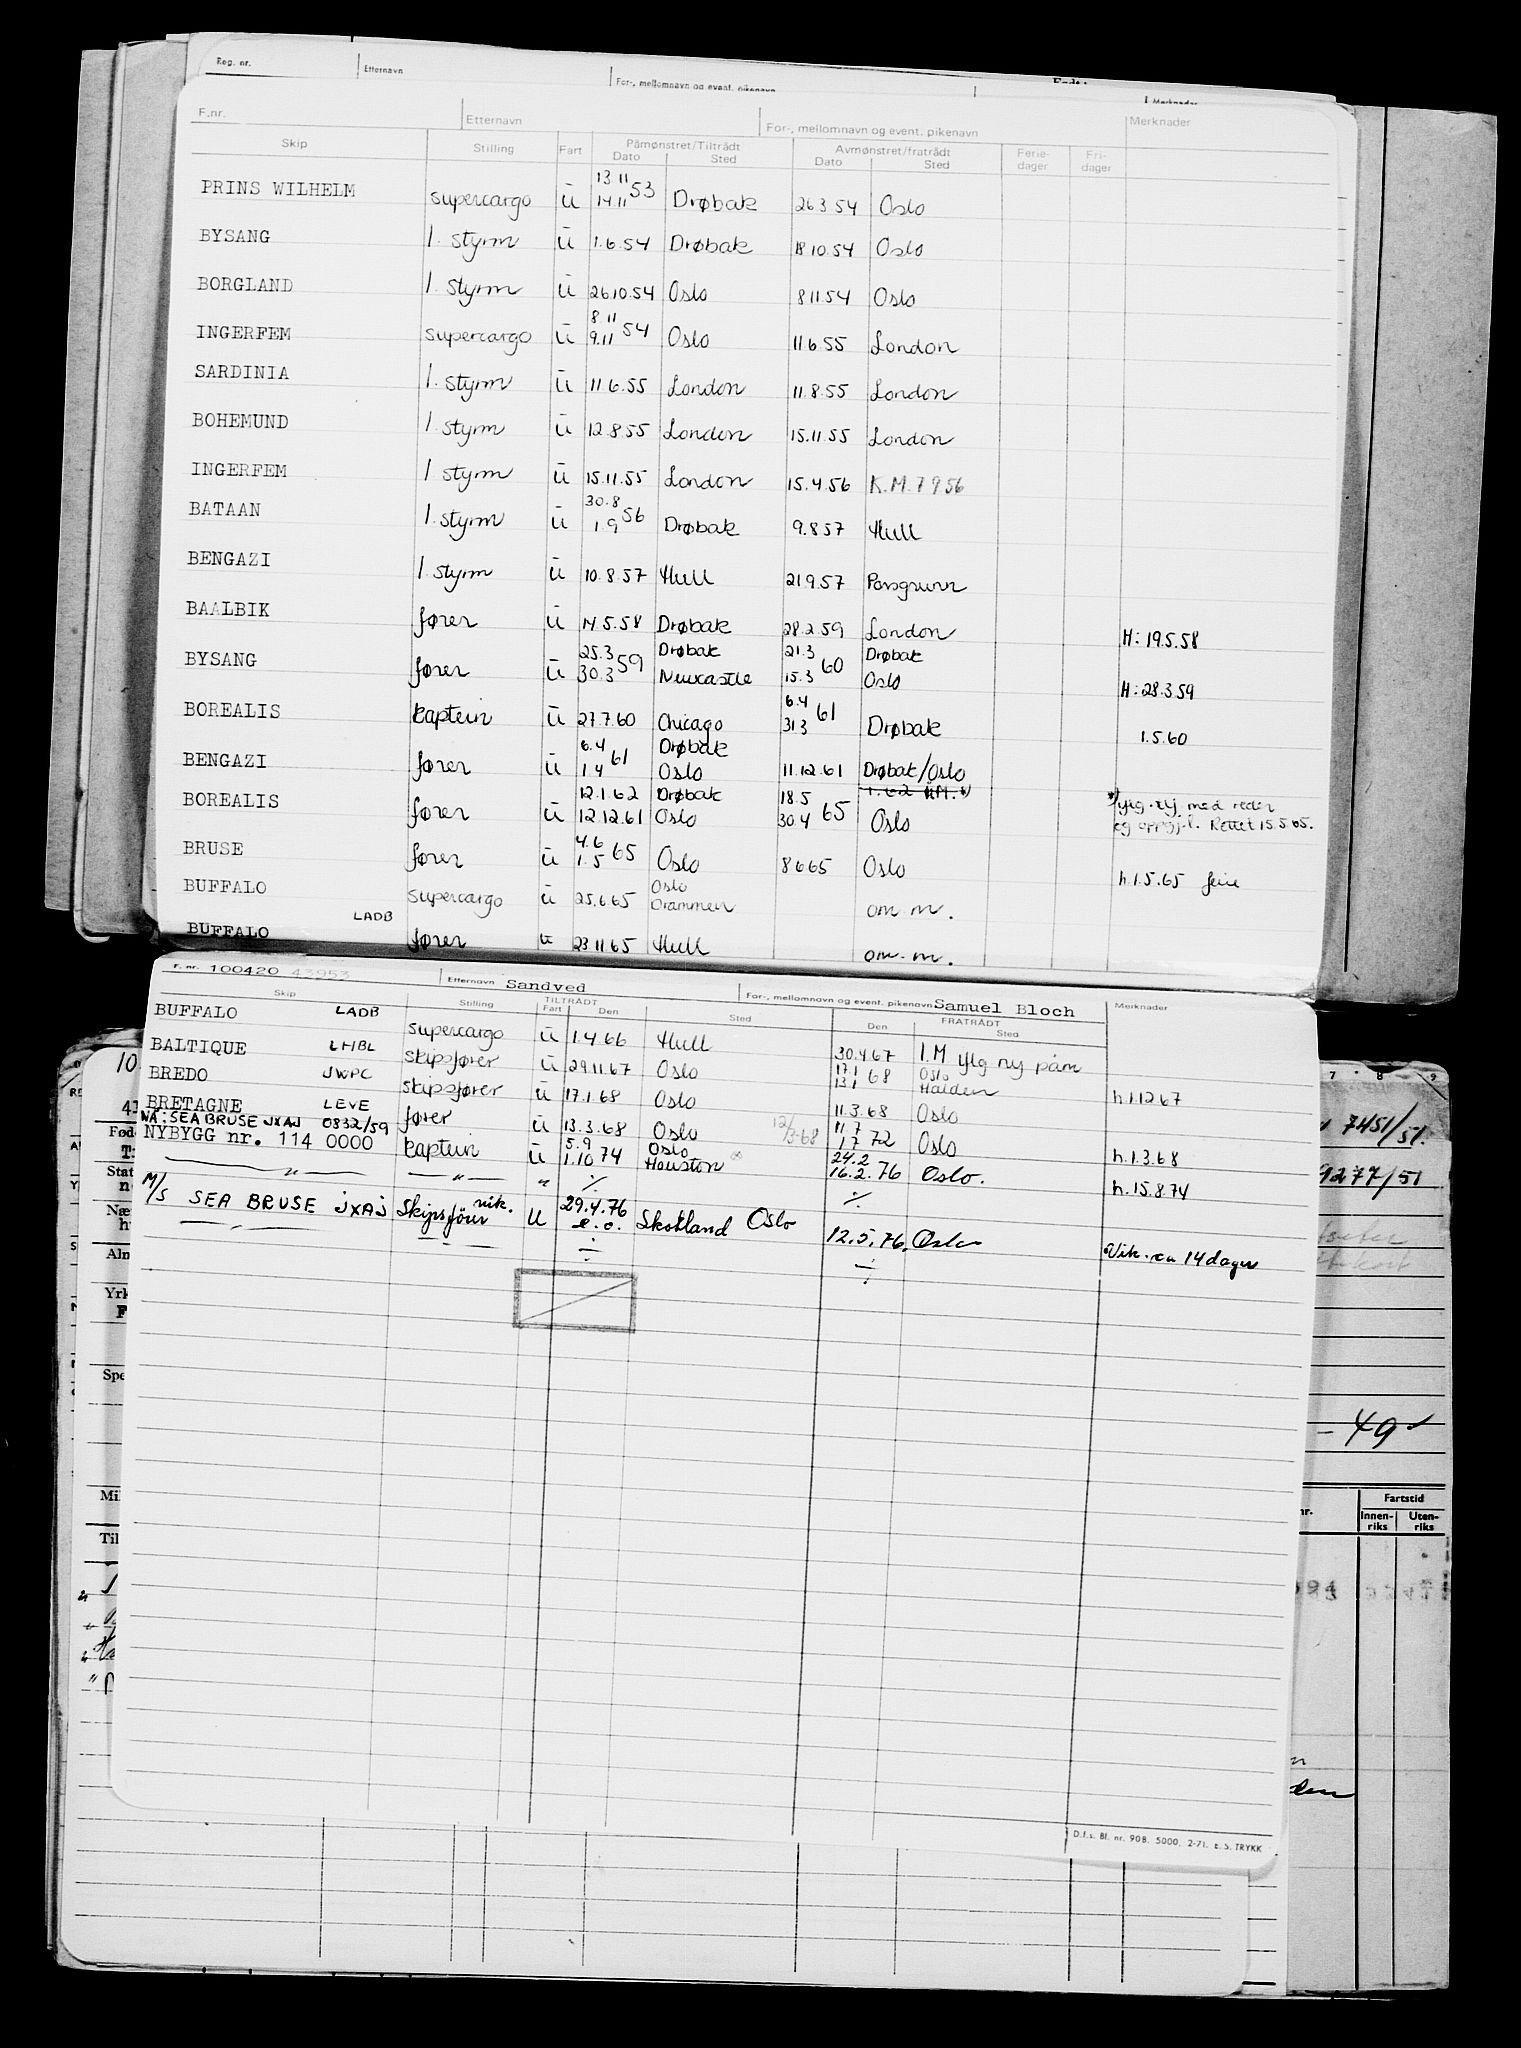 Reg. nr. Etternavn For-, mellomnavn og event. pikenavn Merknader
F.nr. Etternavn For-, mellomnavn og event. pikenavn Merknader
Skip Stilling Fart Påmønstret/Tiltrådt Avmønstret/fratrådt Ferie-dager Fri-dager
Dato Sted Dato Sted
PRINS WILHELM supercargo ū 13.11 14.11 53 Drøbak 26 3 54 Oslo
BYSANG 1. styrm ū 1.6.54 Drøbak 18 10.54 Oslo
BORGLAND 1. styrm ū 26 10.54 Oslo 8 11.54 Oslo
INGERFEM supercargo ū 8.11 9.11 54 Oslo 11.6.55 London
SARDINIA 1. styrm ū 11 6.55 London 11.8.55 London
BOHEMUND 1. styrm ū 12.8.55 London 15.11.55 London
INGERFEM 1 styrm ū 15.11.55 London 15.4.56 K.M. 7 9 56
BATAAN 1. styrm ū 30.8 1.9 56 Drøbak 9.8 57 Hull
BENGAZI 1. styrm ū 10.8.57 Hull 21 9.57 Porsgrunn
BAALBIK fører ū 14.5.58 Drøbak 28.2.59 London H: 19.5.58
BYSANG fører ū 25.3 30.3 59 Drøbak Newcastle 21.3 15.3 60 Drøbak Oslo H: 28.3.59
BOREALIS kaptein ū 27.7.60 Chicago 6.4 31 3 61 Drøbak 1.5.60
BENGAZI fører ū 6.4 1.4 61 Drøbak Oslo 11.12.61 Drøbak/Oslo
BOREALIS fører ū 12.1.62 12.12.61 Drøbak Oslo 18.5 30.4 65 Oslo iflg. med reder og oppgj. Rettet 15.5.65.
BRUSE fører ū 4.6 1.5 65 Oslo 8 6 65 Oslo h. 1.5.65 ferie
BUFFALO supercargo ū 25.6.65 Oslo Drammen om m.
BUFFALO LADB fører ū 23 11 65 Hull om m.
F. nr. 100420 43953 Etternavn Sandved For-, mellomnavn og event. pikenavn Samuel Bloch Merknader
Skip Stilling TILTRÅDT Fart Den Sted FRATRÅDT Den Sted
BUFFALO LADB supercargo ū 1.4.66 Hull 30.4.67 I.M iflg ny påm
BALTIQUE LHBL skipsfører ū 29.11.67 Oslo 17.1 13.1 68 Oslo Halden h.1.12 67
BREDO JWPC skipsfører ū 17.1.68 Oslo 11.3.68 Oslo
BRETAGNE LEVE fører ū 13.3.68 Oslo 12/3-68 11.7 1 7 72 Oslo h.1.3.68
NÅ: SEA BRUSE JXAJ 0832/59
NYBYGG nr. 114 0000 kaptein ū 5.9 1.10 74 Oslo Houston 24.2 16.2.76 Oslo. h.15.8.74
M/S SEA BRUSE JXAJ Skipsfører vik. U 29.4.76 e.o. Skottland Oslo 12.5.76. Oslo Vik. ca 14 dager
D.f.s. Bl. nr. 90B. 5000. 2-71. E. S. TRYKK
7 8 9
7451/51.
9277/51
- 49
Fartstid
Innen-riks Uten-riks